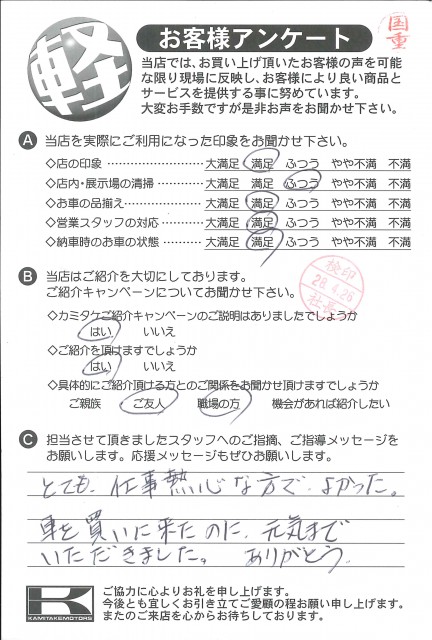 国重
軽
お客様アンケート
当店では、お買い上げ頂いたお客様の声を可能
な限り現場に反映し、お客様により良い商品と
サービスを提供する事に努めています。
大変お手数ですが是非お声をお聞かせ下さい。
A 当店を実際にご利用になった印象をお聞かせ下さい。
◇店の印象 ………………… 大満足 満足 ふつう やや不満 不満
◇店内・展示場の清掃 ………… 大満足 満足 ふつう やや不満 不満
◇お車の品揃え ……………… 大満足 満足 ふつう やや不満 不満
◇営業スタッフの対応 ………… 大満足 満足 ふつう やや不満 不満
◇納車時のお車の状態 ………… 大満足 満足 ふつう やや不満 不満
B 当店はご紹介を大切にしてあります。
ご紹介キャンペーンについてお聞かせ下さい。
検印
28.4.26
社長
◇カミタケご紹介キャンペーンのご説明はありましたでしょうか
はい いいえ
◇ご紹介を頂けますでしょうか
はい いいえ
◇具体的にご紹介頂ける方とのご関係をお聞かせ頂けますでしょうか
ご親族 ・ご友人 職場の方 機会があれば紹介したい
C 担当させて頂きましたスタッフへのご指摘、ご指導メッセージを
お願いします。応援メッセージもぜひお願いします。
とても、仕事熱心な方で、よかった。
車を買いに来たのに、元気まで
いただきました。ありがとう。
K
KAMITAKEMOTORS
ご協力に心よりお礼を申し上げます。
今後とも宜しくお引き立てご愛顧の程お願い申し上げます。
またのご来店を心からお待ちしております。